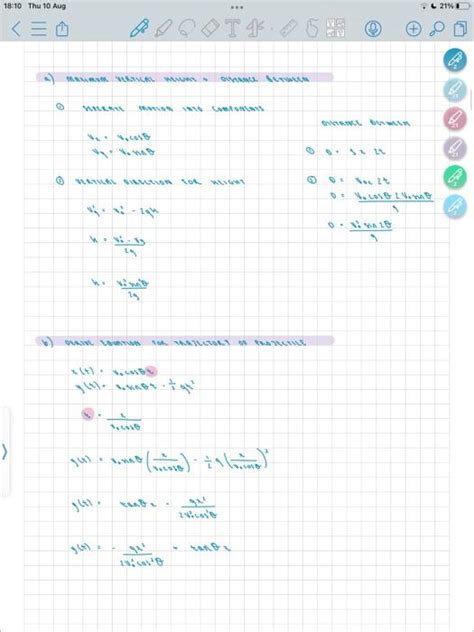 18:10 Thu 10 Aug
21%
a) MAXIMUM VERTICAL HEIGHT + DISTANCE BETWEEN
① SEPERATE MOTION INTO COMPONENTS
vₓ = v₀cosθ
v_y = v₀sinθ
② VERTICAL DIRECTION FOR HEIGHT
v_y² = v₀² - 2gh
h = (v₀² - v_y)/2g
h = v₀²sin²θ/2g
DISTANCE BETWEEN
① D = s × 2t
② D = v₀ₓ 2t
D = v₀cosθ 2v₀sinθ/g
D = v₀² sin2θ/g
b) DERIVE EQUATION FOR TRAJECTORY OF PROJECTILE
x(t) = v₀cosθt
y(t) = v₀sinθt - ½ gt²
t = x/v₀cosθ
y(t) = v₀sinθ(x/v₀cosθ) - ½ g(x/v₀cosθ)²
y(t) = tanθx - gx²/2v₀²cos²θ
y(t) = - gx²/2v₀²cos²θ + tanθx